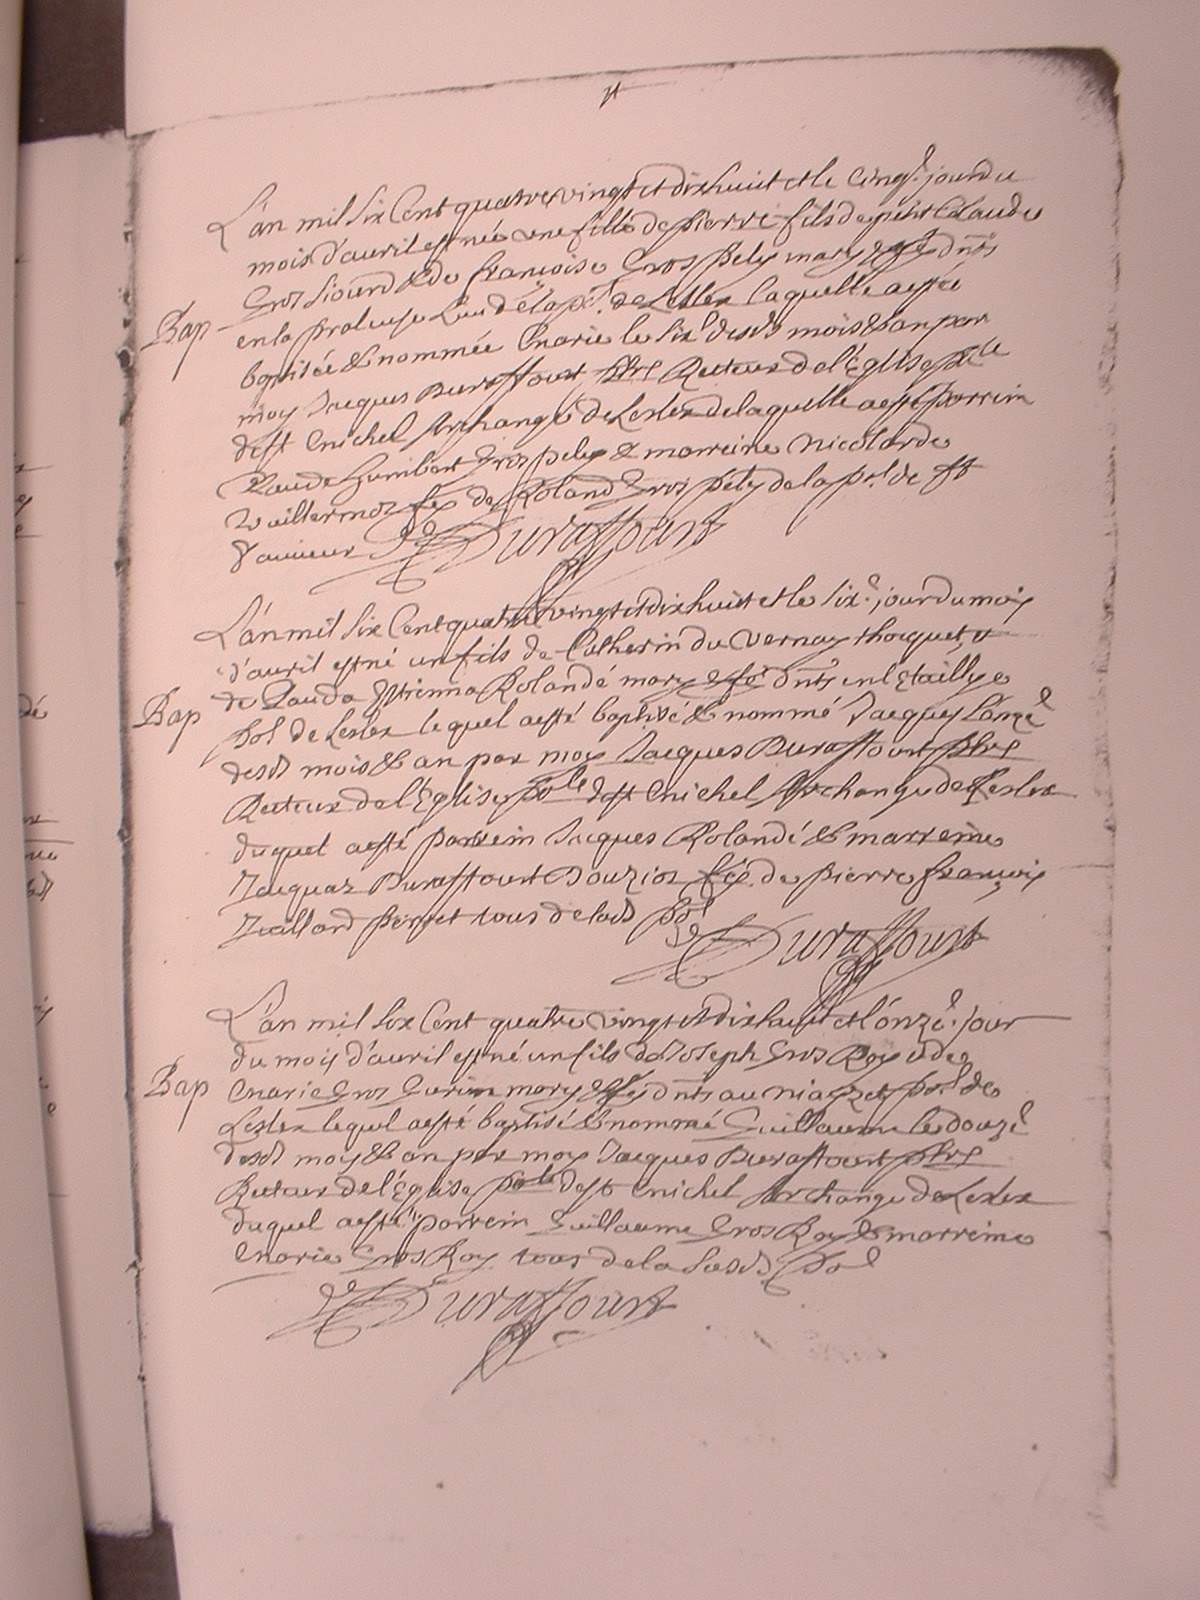 L'an mil six Cent quatre vingt et dix huict et le Cinq.e jour du
mois d'auril est née une fille de Pierre fils de petit Claude
Gros Siourd & de Françoise Gros Pely marys & fe dnts
en la paroisse de Lesles laquelle a esté
Bap
baptisée & nommée Marie le six.e desds mois & an par
moy Jacques Duraffourt pbre Recteur de l'Eglise plle
de st Michel Archange de Lesles de laquelle a esté parrein
Claude Humbert Gros Pely & marreine Nicolarde
Vuillermoz fe de Roland Gros Pely de la pol de st
Duraffourt
L'an mil six Cent quatre vingt et dix huict et le six.e jour du mois
d'auril est né un fils de Catherin du Vernay Thocquet, &
de Clauda Estienna Rolandé marys & fe dnts en l'Etaillye
Bap
pol de Lesles lequel a esté baptisé & nommé Jacques l'onze
desds mois & an par moy Jacques Duraffourt pbre
Recteur de l'Eglise polle de st Michel Archange de Lesles
duquel a esté parrein Jacques Rolandé & marreine
Jacquaz Duraffourt Douzioz fe de Pierre François
Juillard Perret tous de lads pol
Duraffourt
L'an mil six Cent quatre vingt et dix huict et l'onze.e jour
du mois d'auril est né un fils de Joseph Gros Roy & de
Bap
Marie Gros Gurin marys & fe dnts au Niaizet pol de
Lesles lequel a esté baptisé & nommé Guillaume le douze
desds mois & an par moy Jacques Duraffourt pbre
Recteur de l'Eglise polle de st Michel Archange de Lesles
duquel a esté parrein Guillaume Gros Roy & marreine
Marie Gros Roy tous de la susds pol
Duraffourt